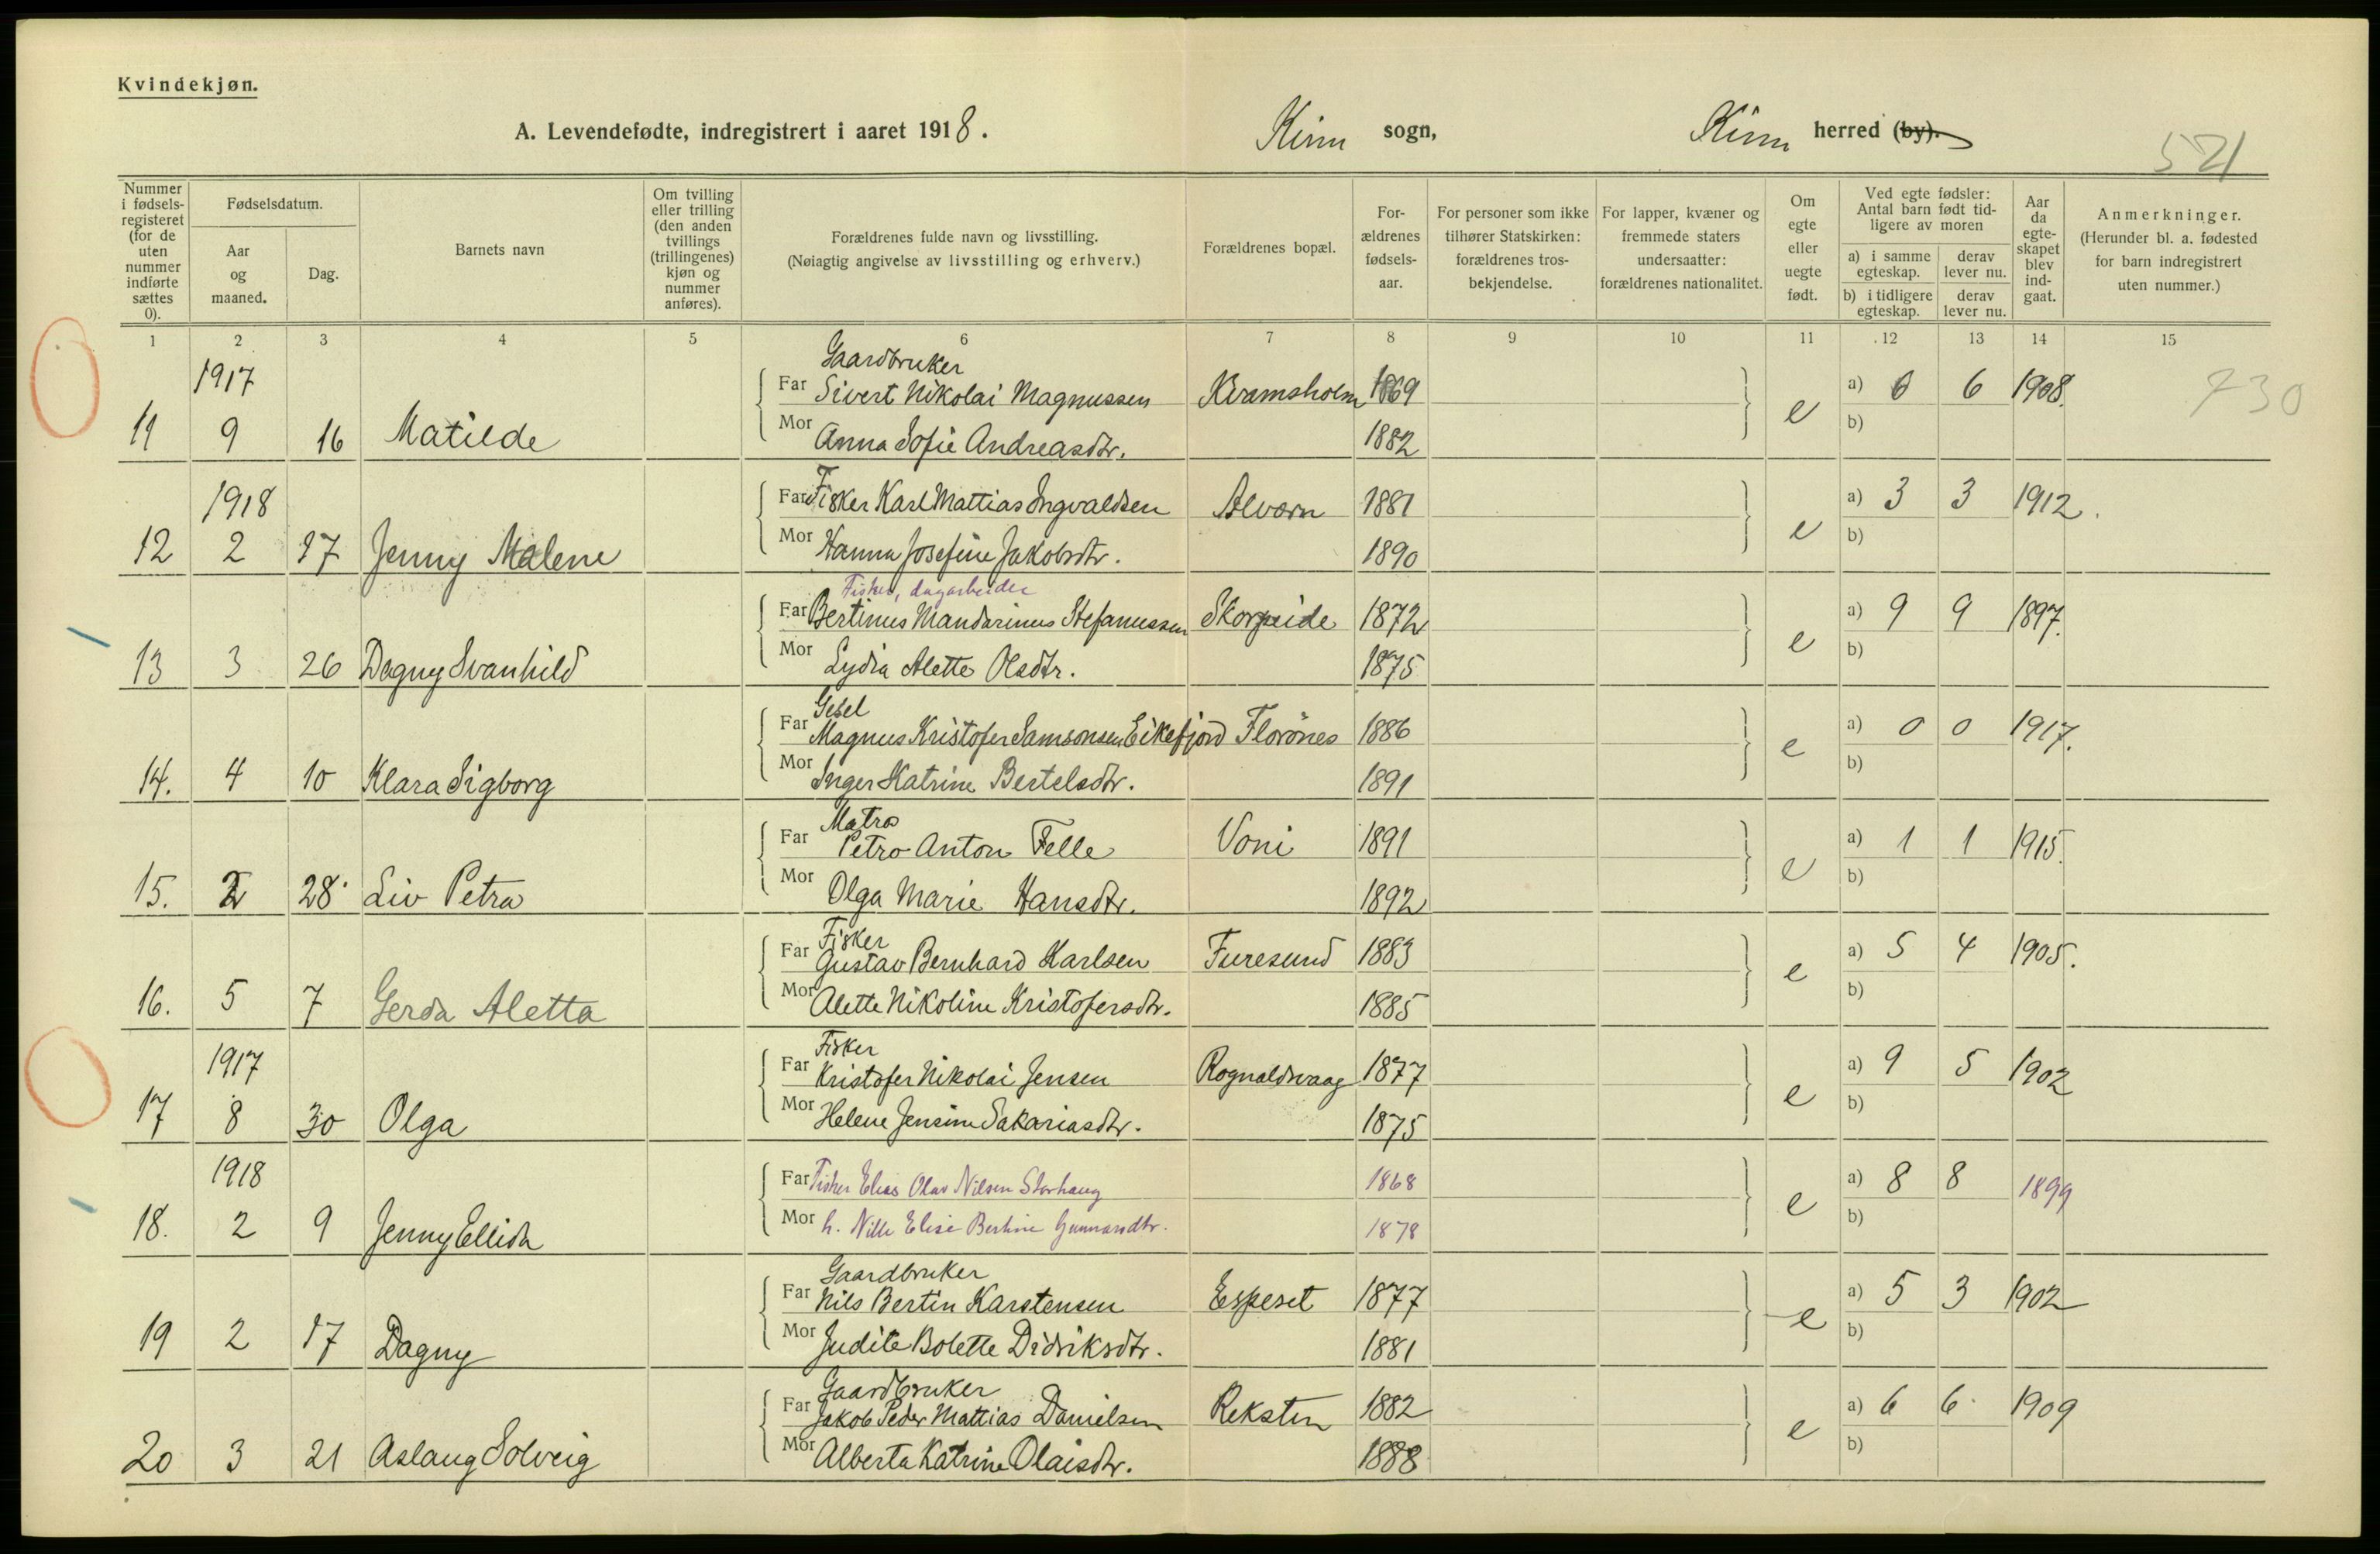 Kvindekjøn.
A. Levendefødte, indregistrert i aaret 1918. Kinn sogn, Kinn herred (by).
521
Nummer i fødsels-registeret (for de uten nummer indførte sættes 0).
Fødselsdatum.
Aar og maaned.
Dag.
Barnets navn
Om tvilling eller trilling (den anden tvillings (trillingenes) kjøn og nummer anføres).
Forældrenes fulde navn og livsstilling.
(Nøiagtig angivelse av livsstilling og erhverv.)
Forældrenes bopæl.
For-ældrenes fødsels-aar.
For personer som ikke tilhører Statskirken: forældrenes tros-bekjendelse.
For lapper, kvæner og fremmede staters undersaatter: forældrenes nationalitet.
Om egte eller uegte født.
Ved egte fødsler: Antal barn født tid-ligere av moren
a) i samme egteskap.
derav lever nu.
b) i tidligere egteskap.
derav lever nu.
Aar da egte-skapet blev ind-gaat.
Anmerkninger.
(Herunder bl. a. fødested for barn indregistrert uten nummer.)
1 2 3 4 5 6 7 8 9 10 11 12 13 14 15
Gaardbruker
1917 Far Sivert Nikolai Magnussen Kvamsholm 1869 a) 6 6 1908. 730
11 9 16 Matilde Mor Anna Sofie Andreasdtr. 1882 e b)
1918 Far Fisker Karl Mattias Ingvaldsen Alværn 1881 a) 3 3 1912.
12 2 17 Jenny Malene Mor Hanna Josefine Jakobsdtr. 1890 e b)
Fisker, dagarbeider
Far Bertinus Mandarinus Stefanussen Skorpeide 1872 a) 9 9 1897.
13 3 26 Dagny Svanhild Mor Lydia Alette Olsdtr. 1875 e b)
Gesel
Far Magnus Kristofer Samsonsen Eikefjord Florönes 1886 a) 0 0 1917.
14. 4 10 Klara Sigborg Mor Inger Katrine Bertelsdtr. 1891 e b)
Matros
Far Petro Anton Felle Voni 1891 a) 1 1 1915.
15. 2 28 Liv Petra Mor Olga Marie Hansdtr. 1892 e b)
Fisker
Far Gustav Bernhard Karlsen Furesund 1883 a) 5 4 1905.
16. 5 7 Gerda Aletta Mor Alette Nikoline Kristofersdtr. 1885 e b)
Fisker
1917 Far Kristofer Nikolai Jensen Rognaldsvaag 1877 a) 9 5 1902
17 8 30 Olga Mor Helene Jensine Sakariasdtr. 1875 e b)
1918 Far Fisker Elias Olav Nilsen Storhaug 1868 a) 8 8 1899
18. 2 9 Jenny Ellida Mor h. Nille Elise Bertine Gunnarsdtr. 1878 e b)
Gaardbruker
Far Nils Bertin Karstensen Espeset 1877 a) 5 3 1902
19 2 17 Dagny Mor Judite Bolette Didriksdtr. 1881 e b)
Gaardbruker
Far Jakob Peder Mattias Danielsen Reksten 1882 a) 6 6 1909
20 3 21 Aslaug Solveig Mor Alberta Katrine Olaisdtr. 1888 e b)